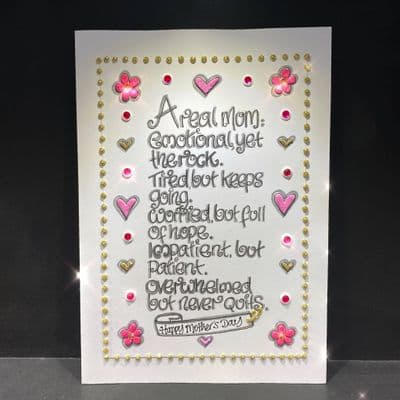 A real mom:
Emotional, yet
the rock.
Tired but keeps
going.
Worried, but full
of hope.
Impatient, but
patient.
overwhelmed
but never quits.
Happy Mother's Day